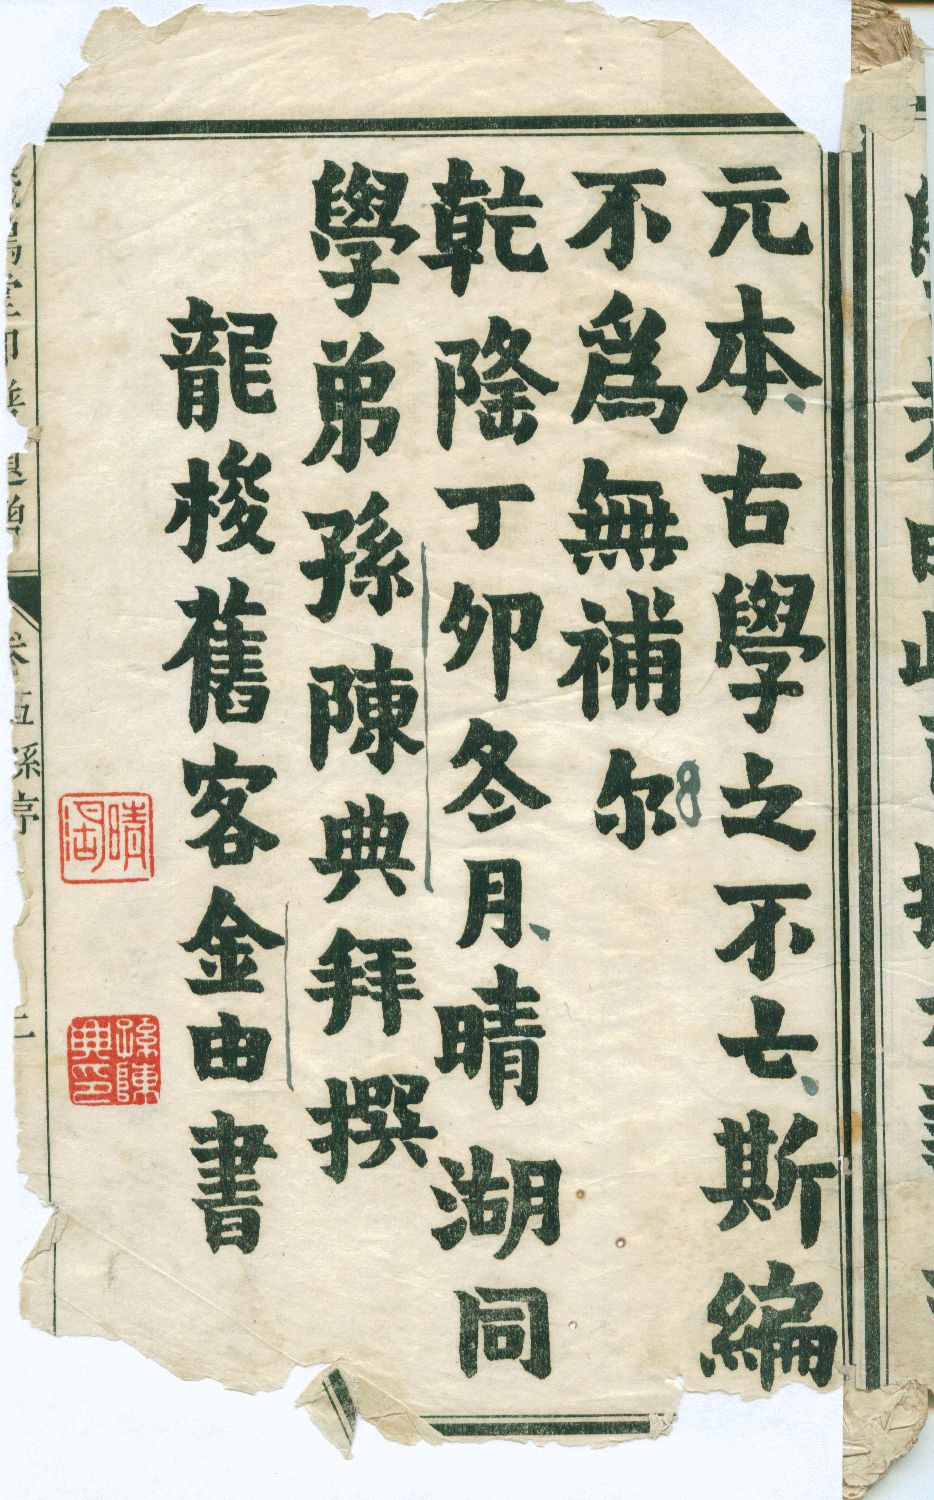 元本古學之不亡斯編
不為無補尔
乾隆丁卯冬月晴湖同
學弟孫陳典拜撰
龍梭舊客金由書
印譜題詞
卷五孫序
二
晴湖
孫陳典印